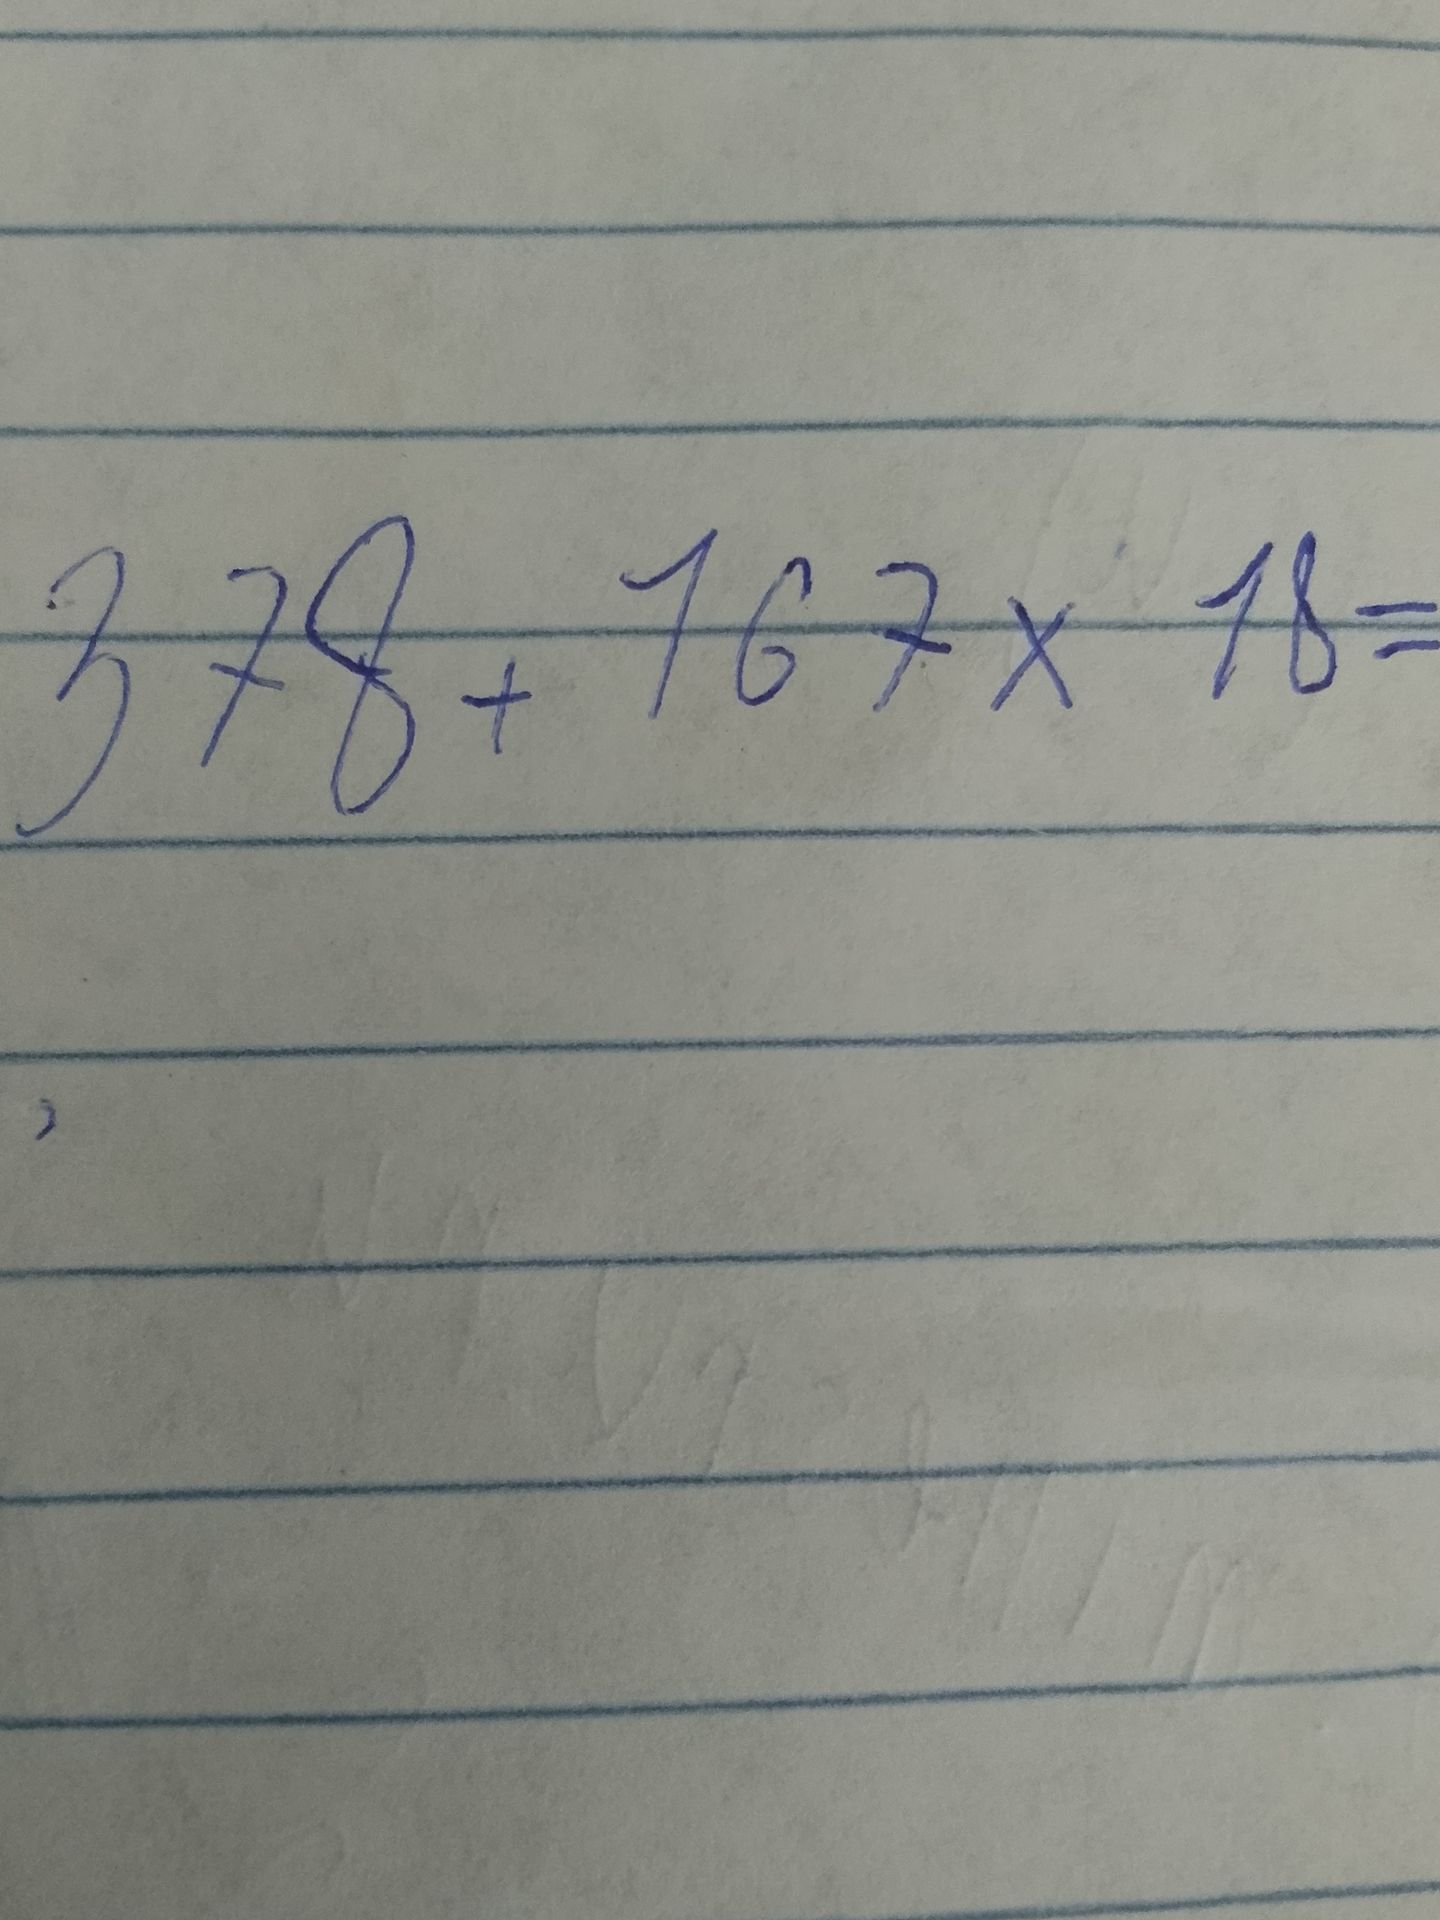 378+ 167x 18=